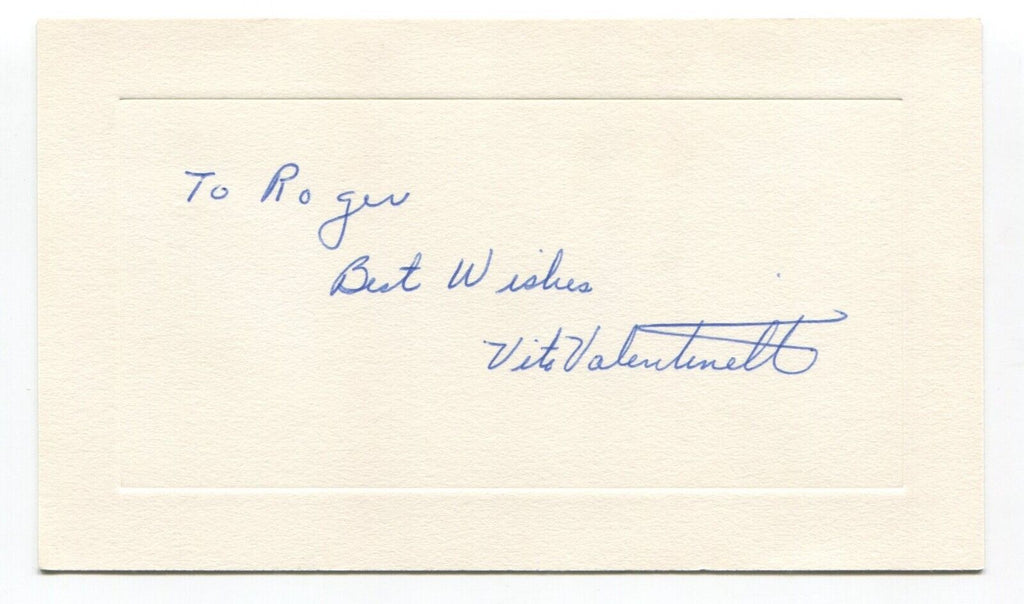 To Roger
Best Wishes
Vito Valentinetti